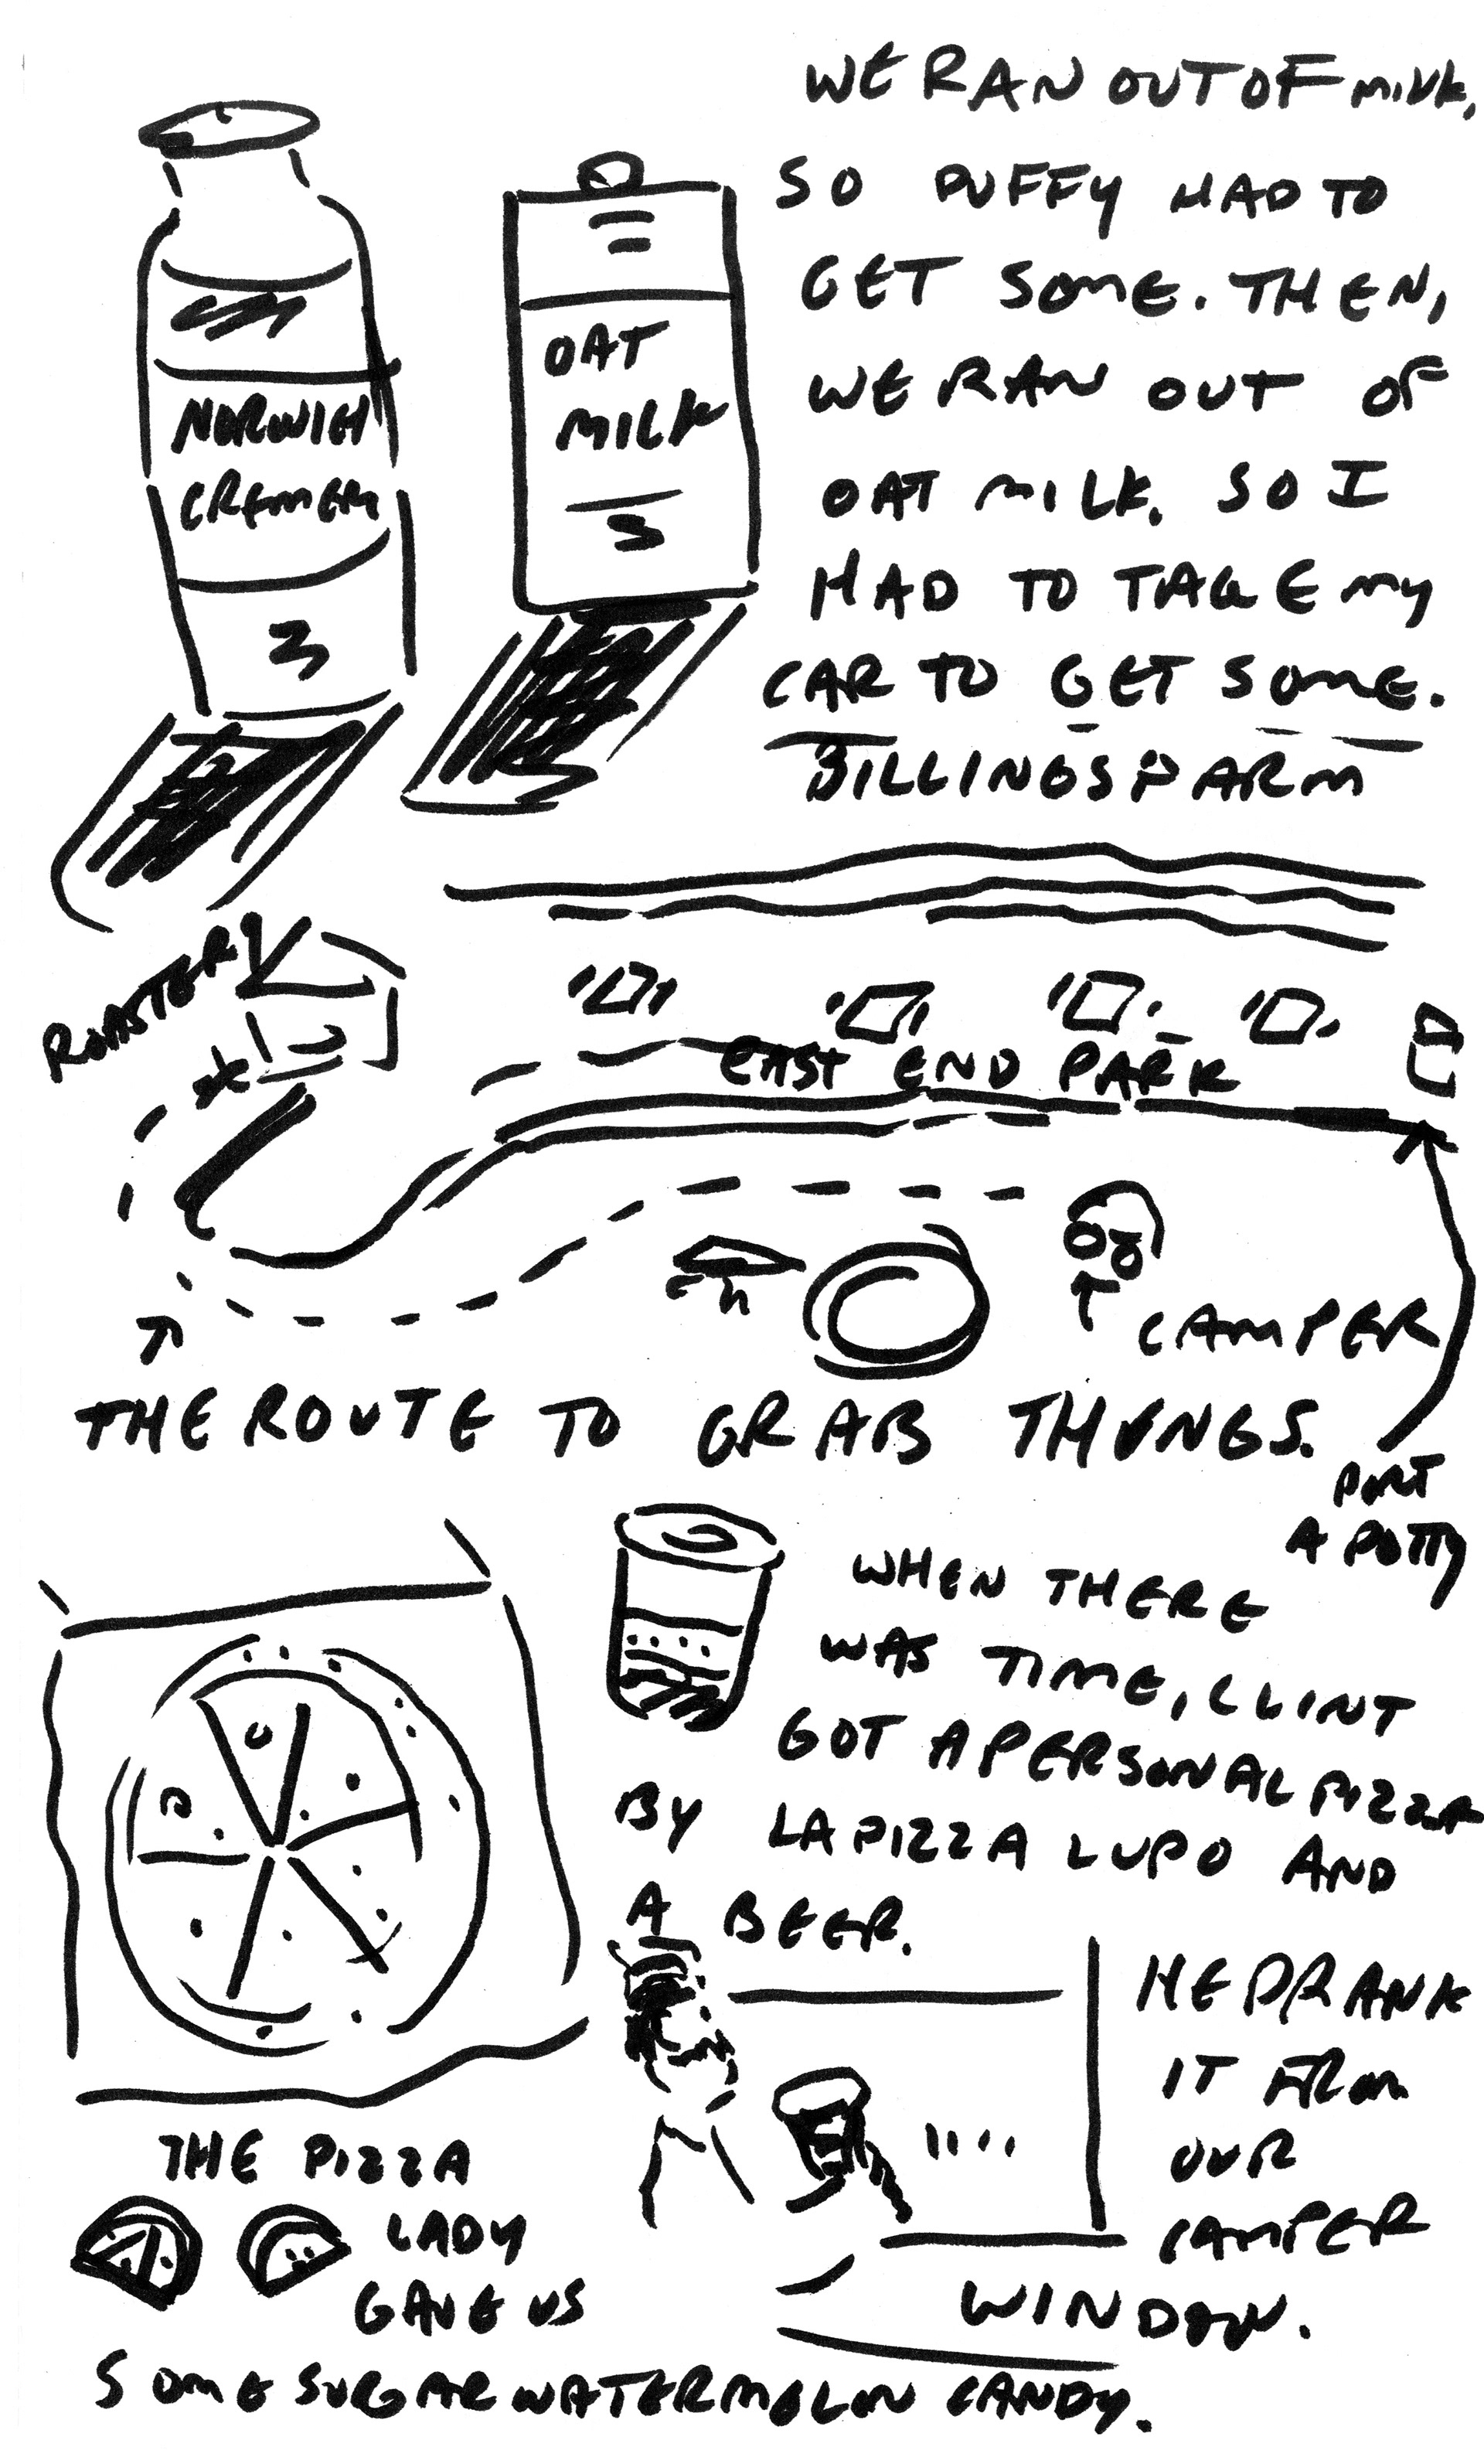 WE RAN OUT OF MILK,
SO PUFFY HAD TO
GET SOME. THEN,
WE RAN OUT OF
OAT MILK. SO I
HAD TO TAKE MY
CAR TO GET SOME.
NORWICH
CREMERY
OAT
MILK
BILLINGS FARM
ROASTERY
EAST END PARK
CAMPER
THE ROUTE TO GRAB THINGS.
PORT
A POTTY
WHEN THERE
WAS TIME, CLINT
GOT A PERSONAL PIZZA
BY LA PIZZA LUPO AND
A BEER.
HE DRANK
IT FROM
OUR
CAMPER
WINDOW.
THE PIZZA
LADY
GAVE US
SOME SUGAR WATERMELON CANDY.